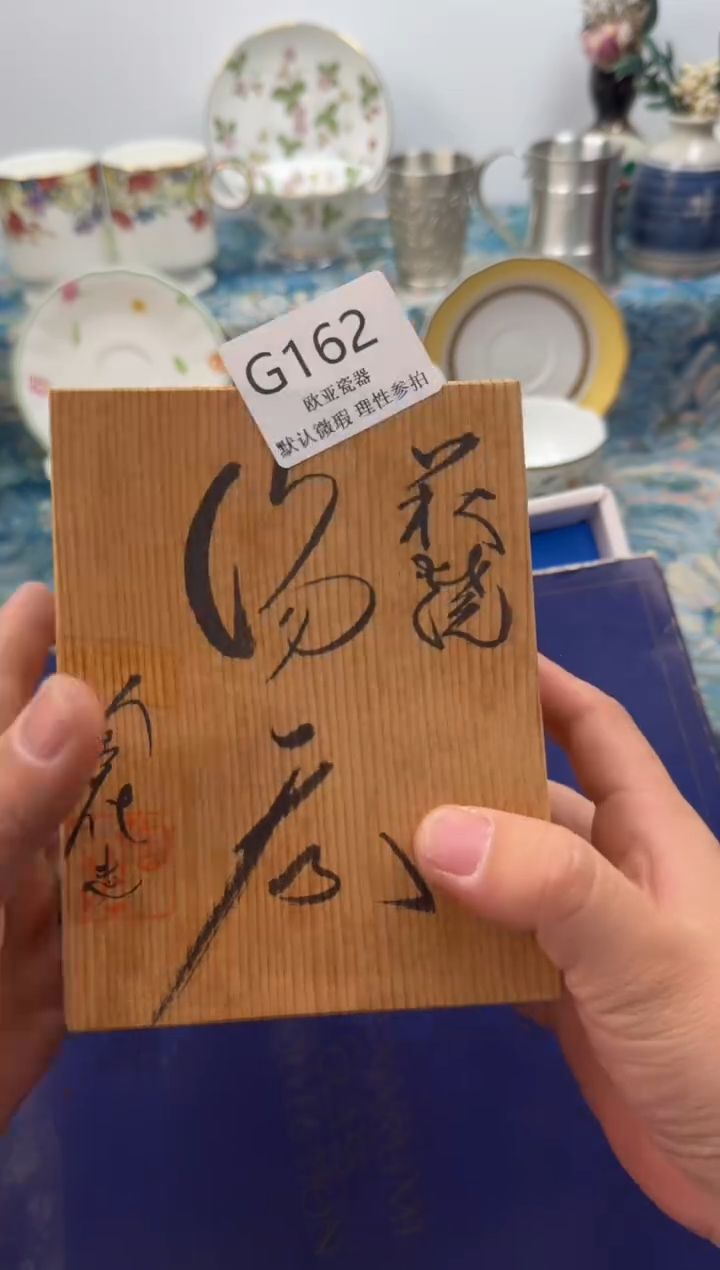 G162
欧亚瓷器
默认微瑕 理性参拍
萩焼
湯呑